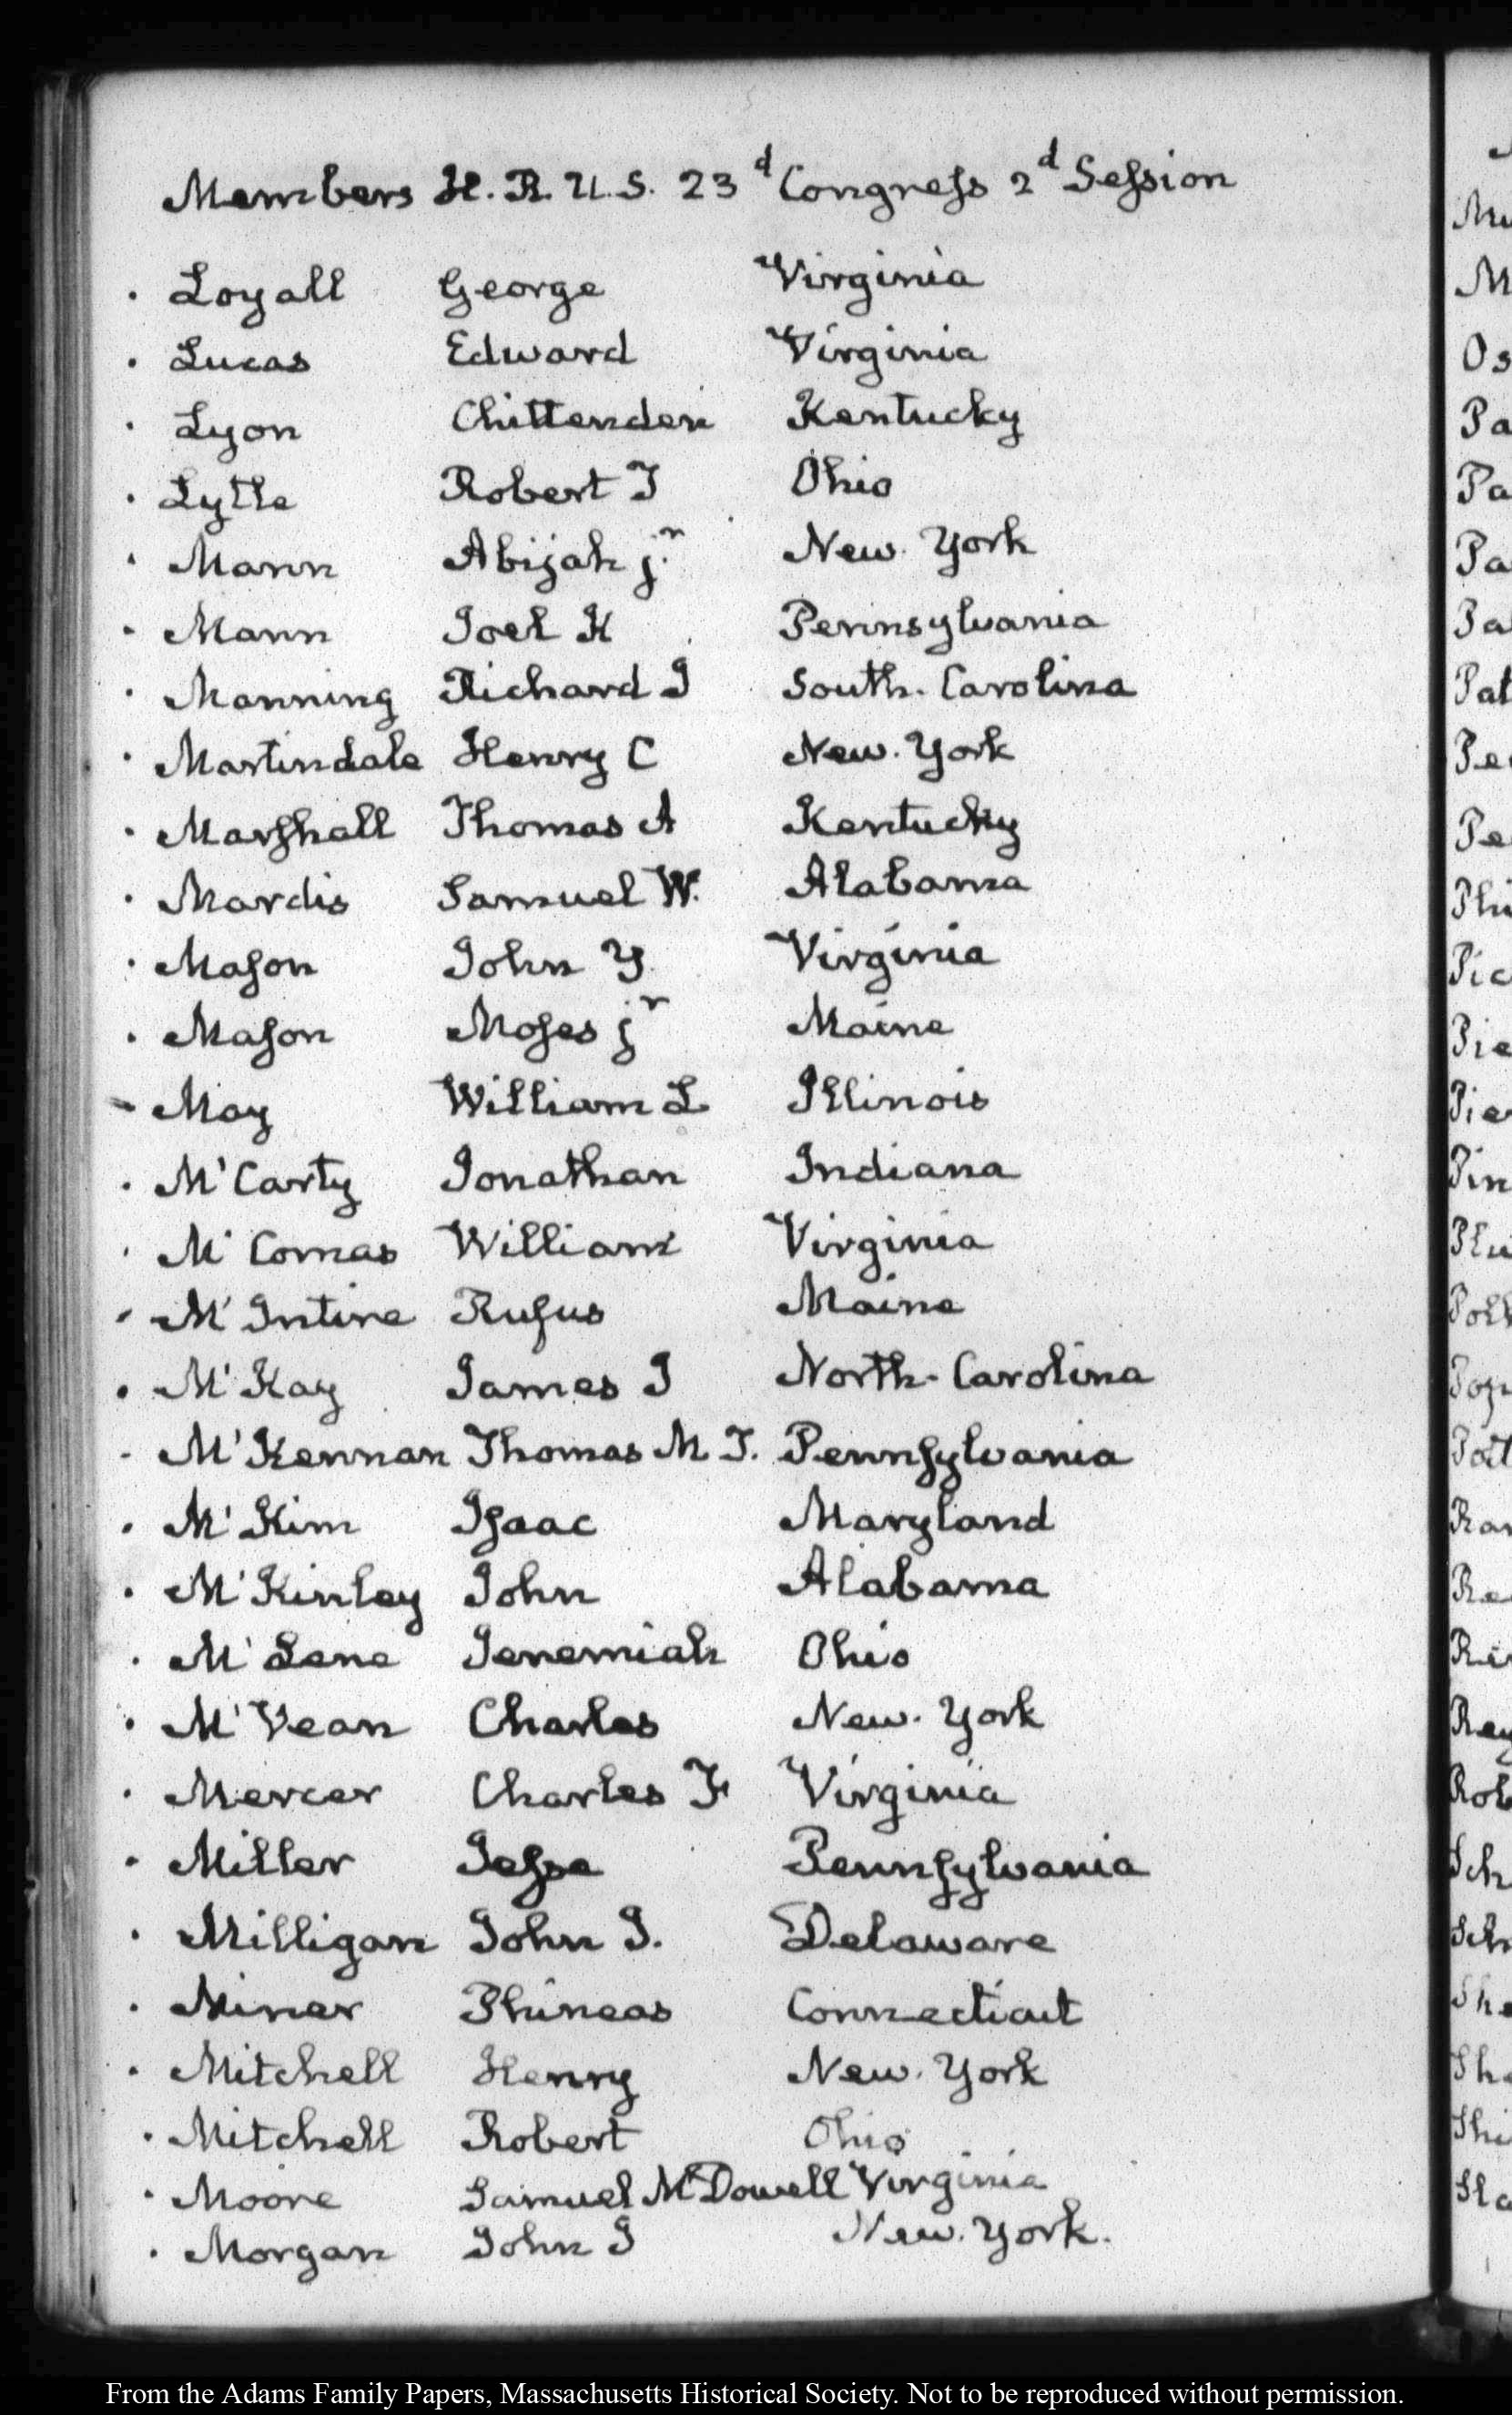 Members H. R. U. S. 23d Congress 2d Session
Loyall George Virginia
Lucas Edward Virginia
Lyon Chittenden Kentucky
Lytle Robert T Ohio
Mann Abijah jr New York
Mann Joel K Pennsylvania
Manning Richard I South Carolina
Martindale Henry C New York
Marshall Thomas A Kentucky
Mardis Samuel W. Alabama
Mason John Y Virginia
Mason Moses jr Maine
May William L Illinois
M'Carty Jonathan Indiana
M'Comas William Virginia
M'Intire Rufus Maine
M'Kay James I North Carolina
M'Kennan Thomas M T. Pennsylvania
M'Kim Isaac Maryland
M'Kinley John Alabama
M'Lene Jeremiah Ohio
M'Vean Charles New York
Mercer Charles F Virginia
Miller Jesse Pennsylvania
Milligan John J. Delaware
Miner Phineas Connecticut
Mitchell Henry New York
Mitchell Robert Ohio
Moore Samuel McDowell Virginia
Morgan John J New York.
From the Adams Family Papers, Massachusetts Historical Society. Not to be reproduced without permission.